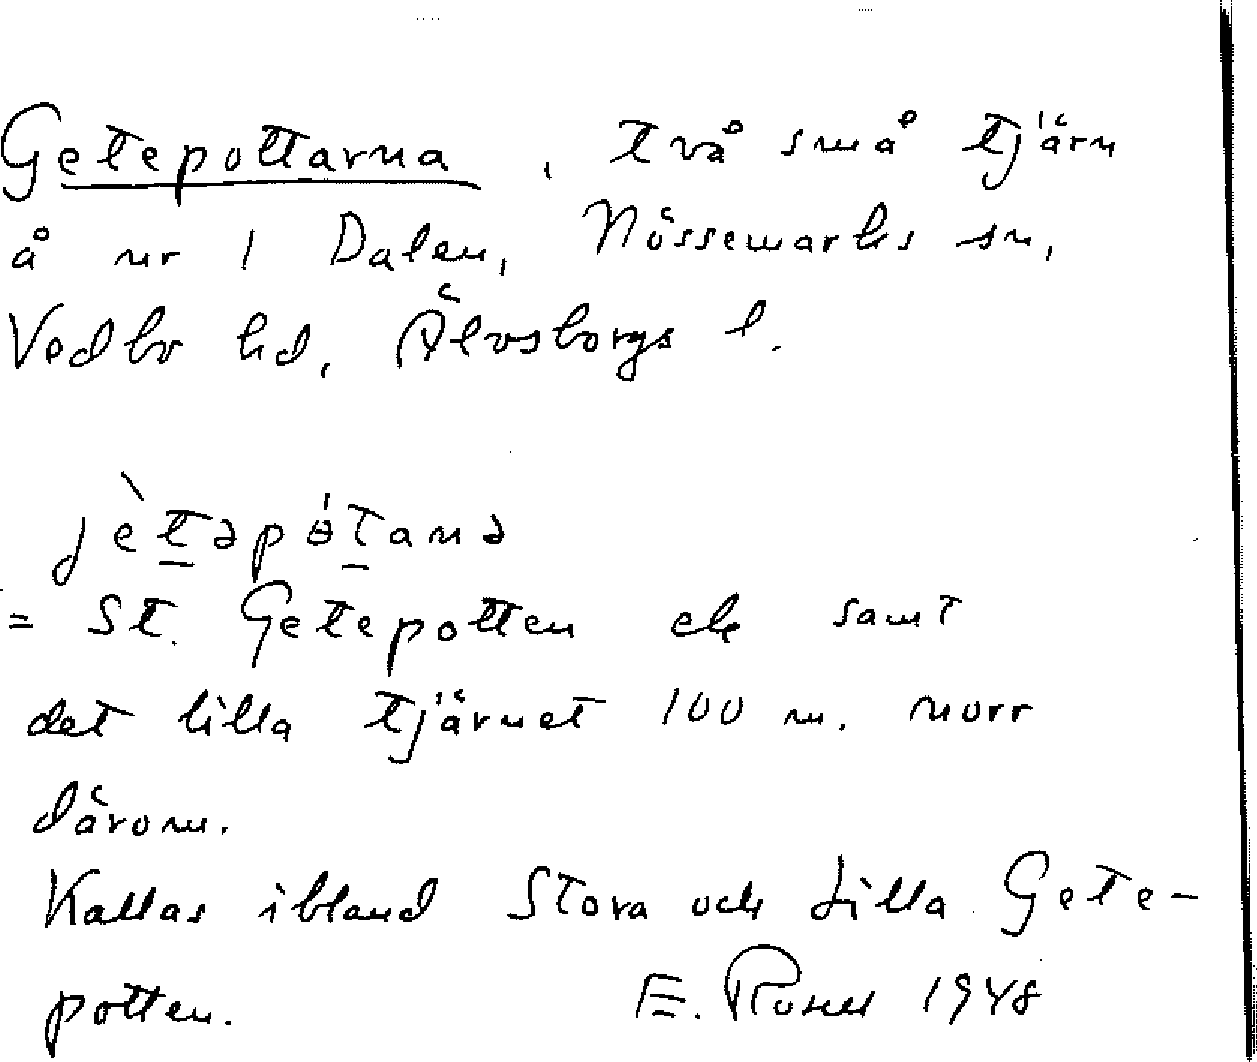 Getepottarna, två små tjärn
å nr 1 Dalen, Nössemarks sn,
Vedbo hd, Älvsborgs l.
jètəpɵ́tanə
= St. Getepotten ek samt
det lilla tjärnet 100 m. norr
därom.
Kallas ibland Stora och Lilla Gete-
potten. E. Rosell 1948